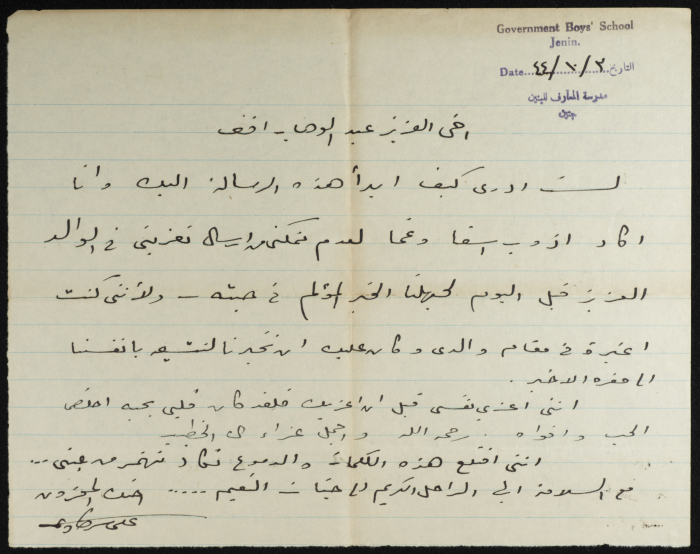 Government Boys' School
Jenin.
Date ٤٤/١٠/٣ التاريخ
مدرسة المعارف للبنين
جنين
اخي العزيز عبد الوهاب افندي
لست ادري كيف ابدأ هذه الرسالة اليك وانا
اكاد اذوب اسفا وغما لعدم تمكني من ارسال تعزيتي في الوالد
العزيز قبل اليوم لجهلنا الخبر المؤلم في حينه – ولأنني كنت
اعتبره في مقام والدي وكان عليك ان تخبرنا لنشيعه بانفسنا
الى مقره الاخير .
انني اعزي نفسي قبل ان اعزيك فلقد كان قلبي يحبه اخلص
الحب واقواه . رحمه الله واجمل عزاء في الخطب
انني اقتلع هذه الكلمات والدموع تكاد تنهمر من عيني ...
مع السلامة ايها الراحل الكريم الى جنات النعيم ..... اخوك المحزون
علي